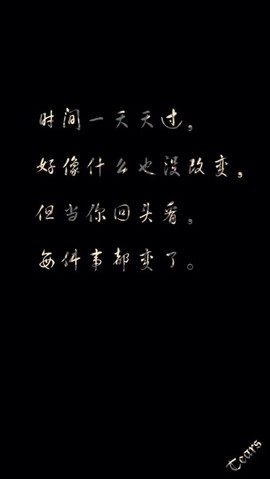 时间一天天过，
好像什么也没改变，
但当你回头看，
每件事都变了。
Tears